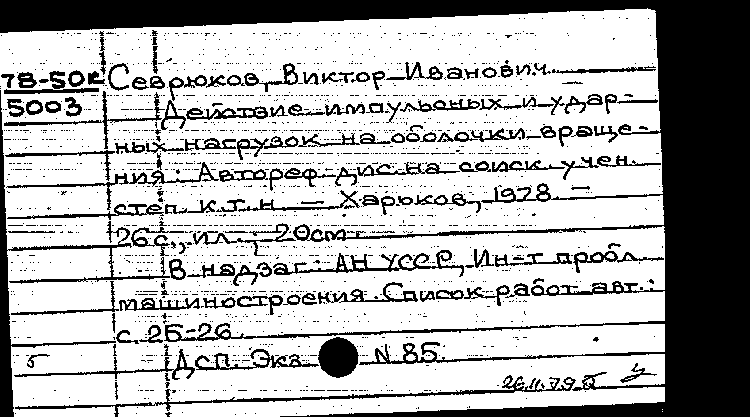 78-50к Севрюков, Виктор Иванович
5003 Действие импульсных и удар-
ных нагрузок на оболочки враще-
ния: Автореф. дис. на соиск. учен.
степ. к.т.н. — Харьков, 1978. —
26 с., ил.; 20см.
В надзаг.: АН УССР, Ин-т пробл.
машиностроения. Список работ авт.:
с. 25-26.
5 Дсп. Экз. N 85.
26.11.79